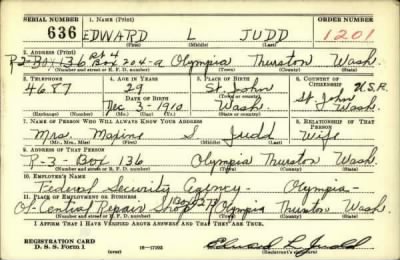 SERIAL NUMBER 1. NAME (Print) ORDER NUMBER
636 EDWARD L JUDD 1201
(First) (Middle) (Last)
2. ADDRESS (Print) Rt 4
R-2-Box 136 Box 204-a Olympia Thurston Wash.
(Number and street or R. F. D. number) (Town) (County) (State)
3. TELEPHONE 4. AGE IN YEARS 5. PLACE OF BIRTH 6. COUNTRY OF CITIZENSHIP
4687 29 St. John U.S.A.
DATE OF BIRTH (Town or county) St. John
Dec 3-1910 Wash. Wash.
(Exchange) (Number) (Mo.) (Day) (Yr.) (State or country)
7. NAME OF PERSON WHO WILL ALWAYS KNOW YOUR ADDRESS 8. RELATIONSHIP OF THAT PERSON
Mrs. Maxine S Judd Wife
(Mr., Mrs., Miss) (First) (Middle) (Last)
9. ADDRESS OF THAT PERSON
R-3-Box 136 Olympia Thurston Wash.
(Number and street or R. F. D. number) (Town) (County) (State)
10. EMPLOYER'S NAME
Federal Security Agency - Olympia -
11. PLACE OF EMPLOYMENT OR BUSINESS
Central Repair Shop Box 273 Olympia Thurston Wash.
(Number and street or R. F. D. number) (Town) (County) (State)
I AFFIRM THAT I HAVE VERIFIED ABOVE ANSWERS AND THAT THEY ARE TRUE.
REGISTRATION CARD
D. S. S. Form 1 (over) 16-17105 Edward L Judd
(Registrant's signature)